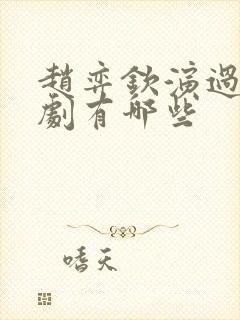 趙弈欽演過
劇有哪些
嗜天